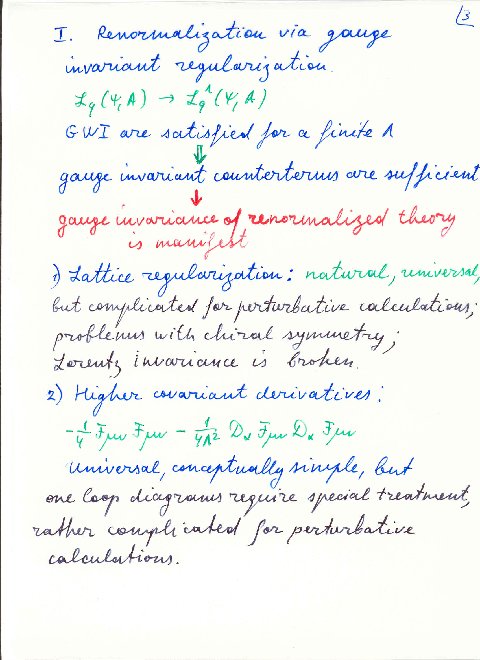 3
I. Renormalization via gauge
invariant regularization.
ℒ_g(Ψ, A) → ℒ_g^Λ(Ψ, A)
GWI are satisfied for a finite Λ
⇓
gauge invariant counterterms are sufficient
↓
gauge invariance of renormalized theory
is manifest
1) Lattice regularization: natural, universal,
but complicated for perturbative calculations;
problems with chiral symmetry;
Lorentz invariance is broken.
2) Higher covariant derivatives:
-1/4 F_μν F_μν - 1/4Λ² D_α F_μν D_α F_μν
Universal, conceptually simple, but
one loop diagrams require special treatment,
rather complicated for perturbative
calculations.